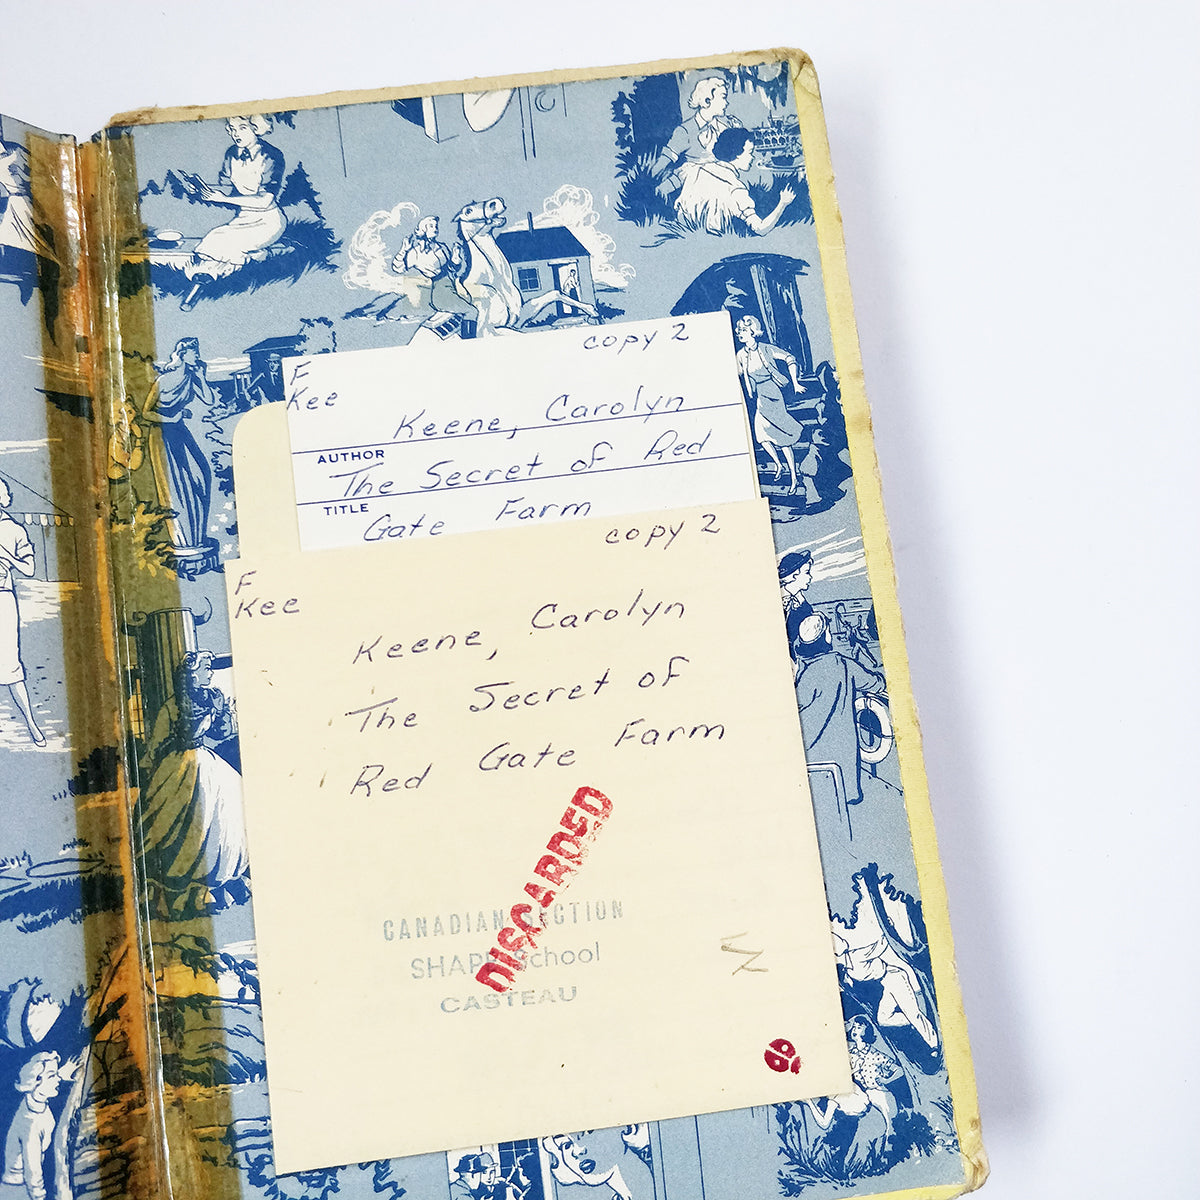 copy 2
F
Kee
Keene, Carolyn
AUTHOR
The Secret of Red
TITLE
Gate Farm
copy 2
F
Kee
Keene, Carolyn
The Secret of
Red Gate Farm
DISCARDED
CANADIAN SECTION
SHAPE School
CASTEAU